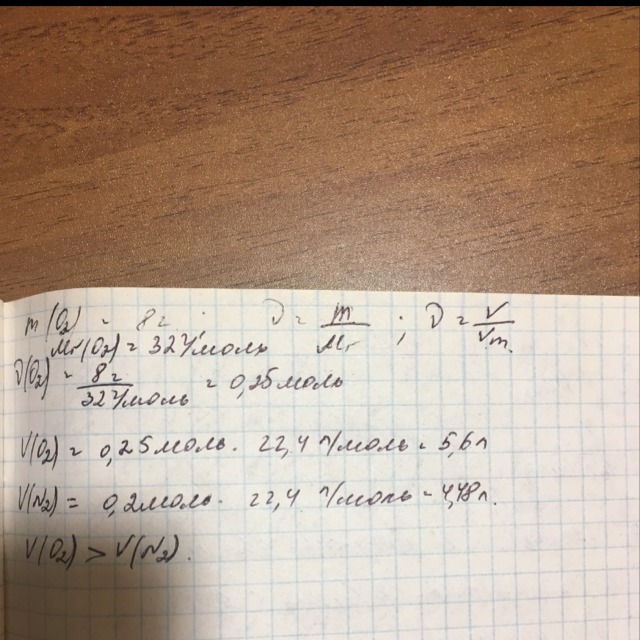 m(O₂) = 8г. ν = m/Mr ; ν = V/Vm.
Mr(O₂) = 32г/моль
ν(O₂) = 8г/32г/моль = 0,25моль
V(O₂) = 0,25моль · 22,4 л/моль = 5,6л
V(N₂) = 0,2моль · 22,4 л/моль = 4,48л.
V(O₂) > V(N₂).